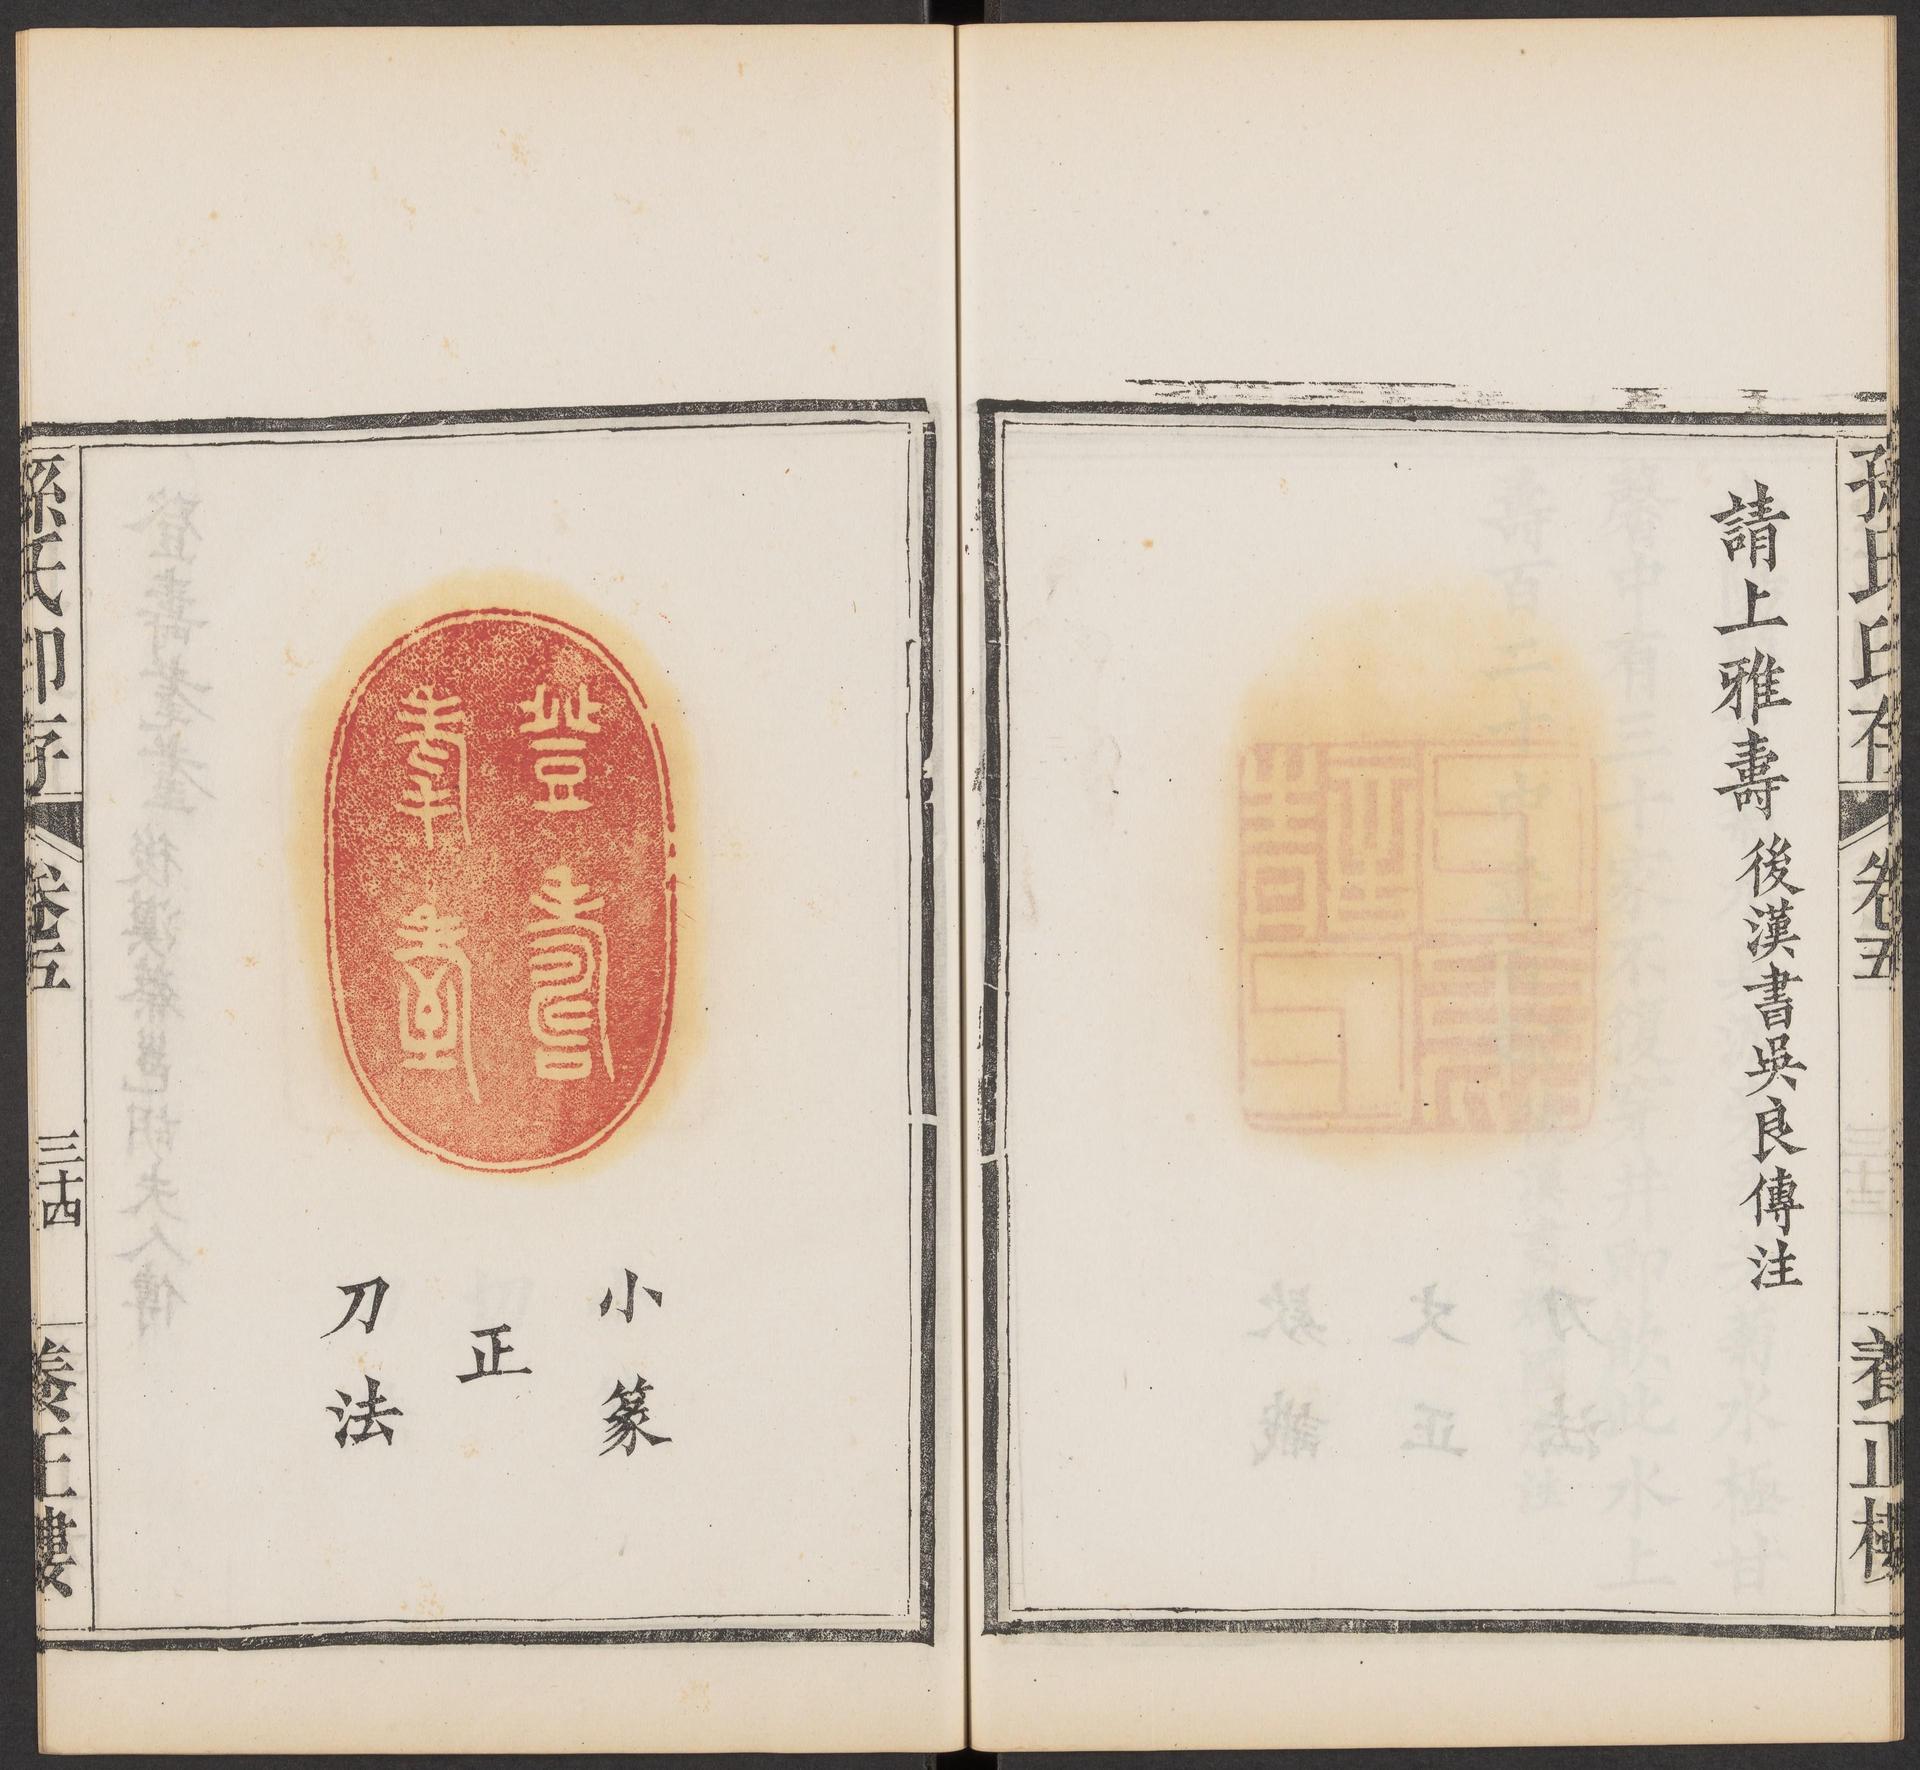 請上雅壽後漢書吳良傳注
孫氏印存
卷五
養正樓
登壽耄耋
小篆
正
刀法
孫氏印存
卷五
三十四
養正樓